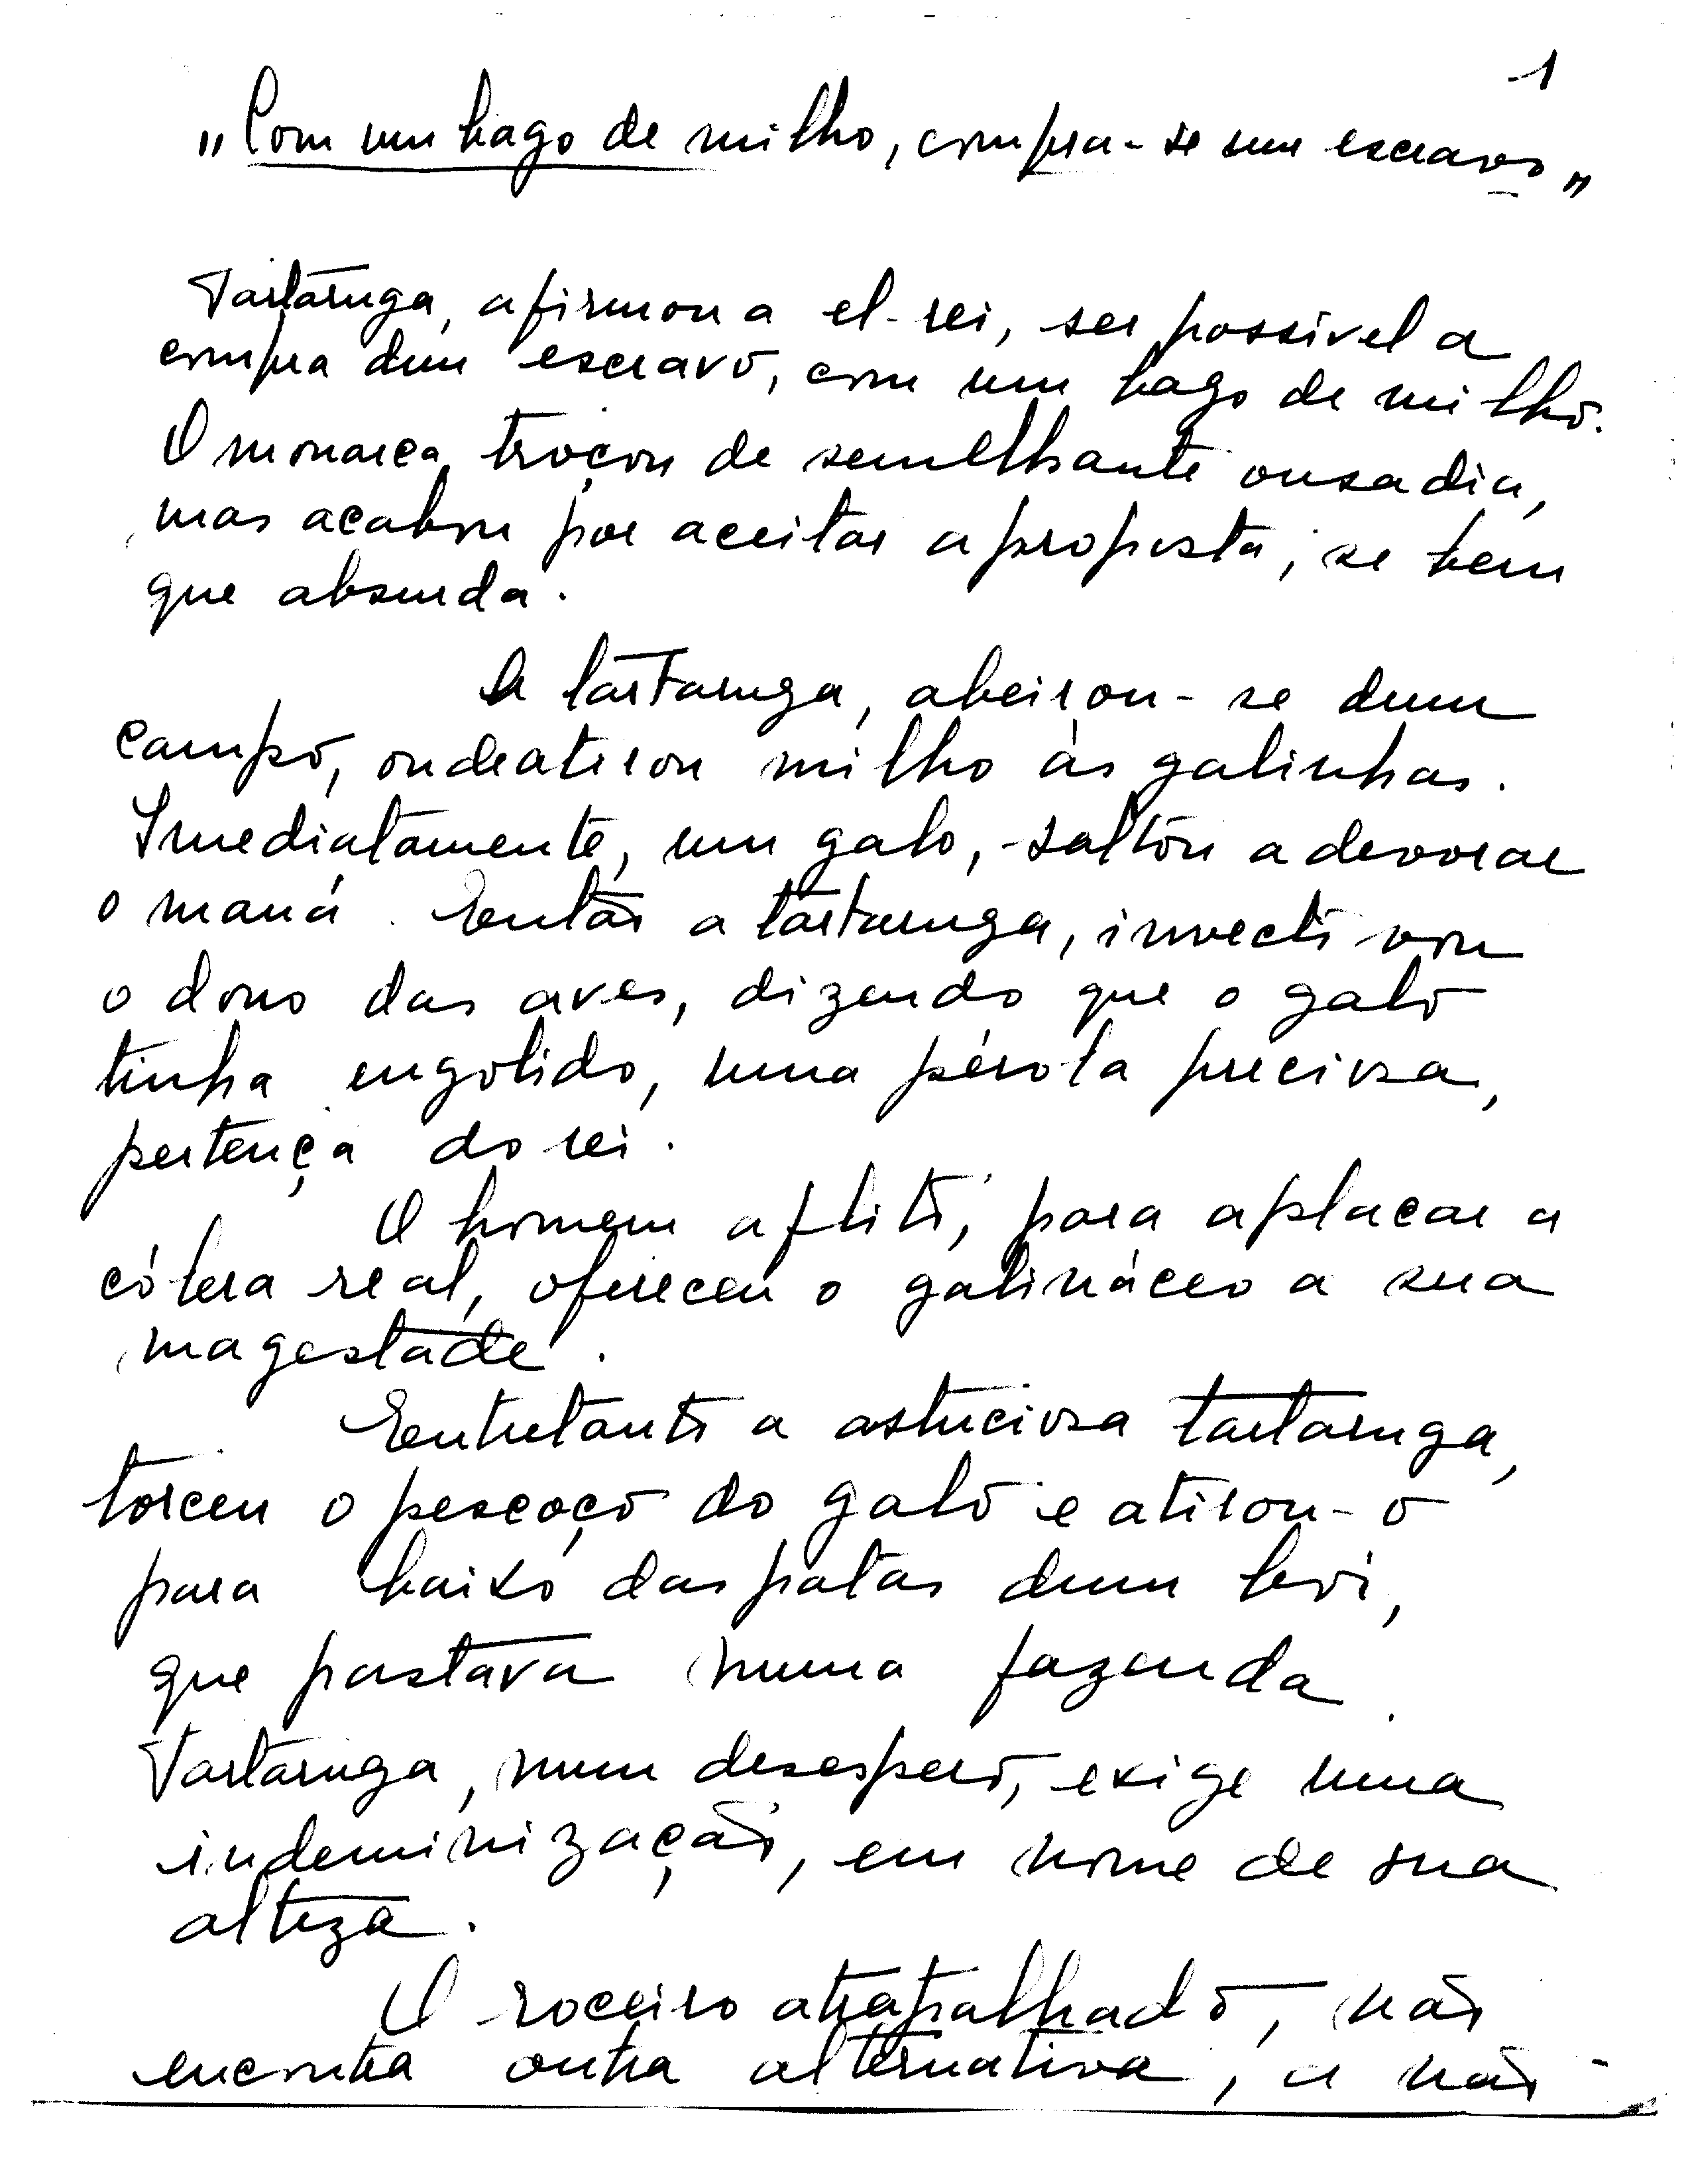 1
"Com um bago de milho, compra-se um escravo"
Tartaruga, afirmou a el-rei, ser possível a
compra dum escravo, com um bago de milho.
O monarca, troçou de semelhante ousadia,
mas acabou por aceitar a proposta, se bem
que absurda.
A tartaruga, abeirou-se dum
campo, onde atirou milho às galinhas.
Imediatamente, um galo, saltou a devorar
o maná. Então a tartaruga, invectivou
o dono das aves, dizendo que o galo
tinha engolido, uma pérola preciosa,
pertença do rei.
O homem aflito, para aplacar a
cólera real, ofereceu o galináceo a sua
magestade.
Entretanto a astuciosa tartaruga,
torceu o pescoço do galo e atirou-o
para baixo das patas dum boi,
que pastava numa fazenda.
Tartaruga, num desespero, exige uma
indeminização, em nome de sua
alteza.
O roceiro atrapalhado, não
encontra outra alternativa, a não -